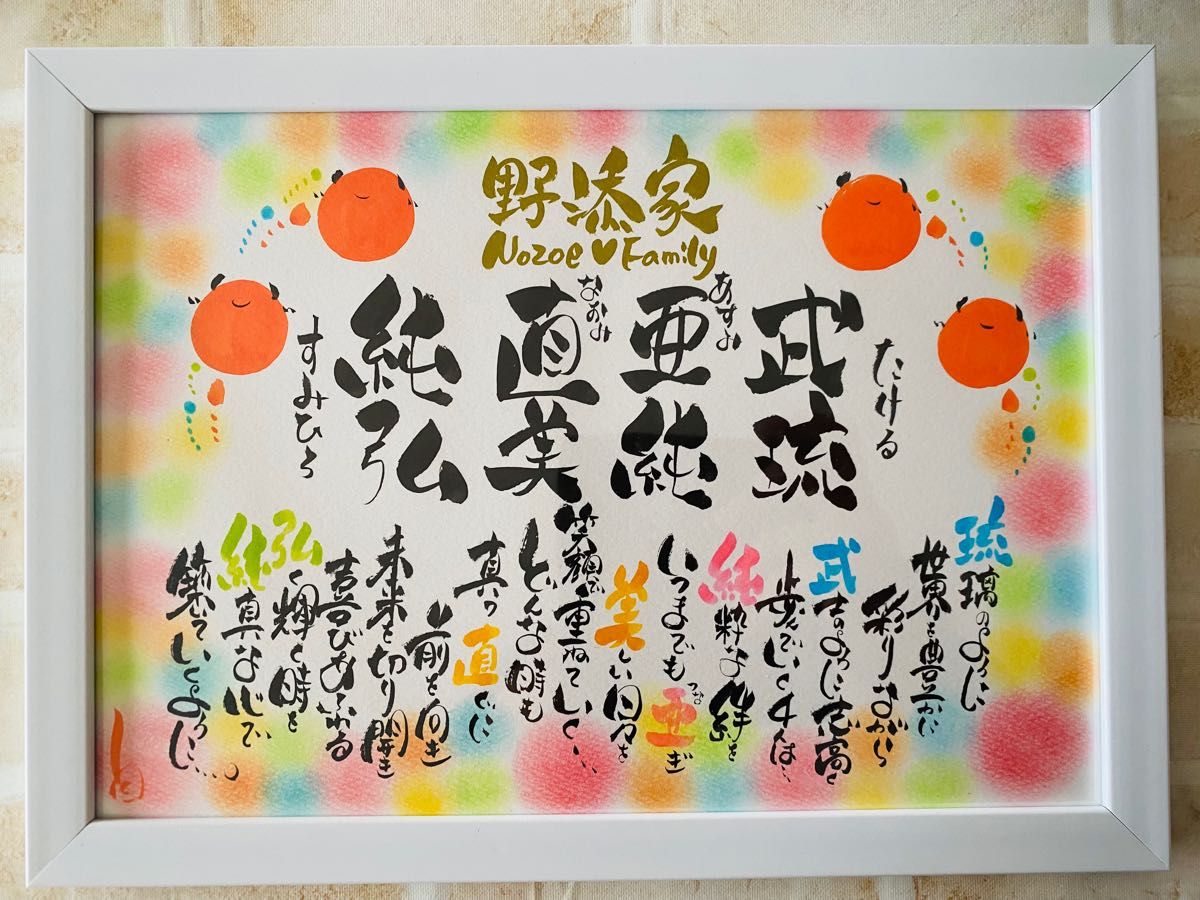 野添家
Nozoe♥Family
武琉
たける
亜純
あすみ
直美
なおみ
純弘
すみひろ
琉璃のように
世界を豊かに
彩りながら
武士のように志高く
歩んでいく4人は…
純粋な絆を
いつまでも亜ぎ
つなぎ
美しい日々を
笑顔で重ねていく…
どんな時も
真っ直ぐに
前を向き
未来を切り開き
喜びあふれる
弘く輝く時を
純真な心で
築いていくように…。